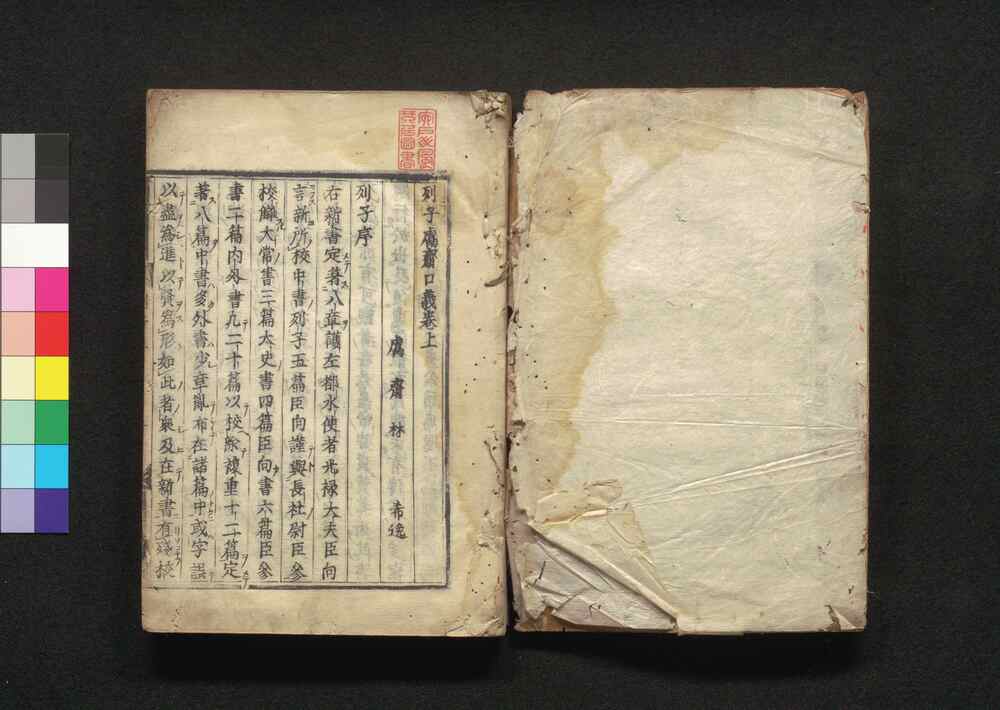 列子鬳齋口義卷上
鬳齋 林 希逸
列子序
右新書定著八章護左都水使者光祿大夫臣向
言所校中書列子五篇臣向謹與長社尉臣參
校讎太常書三篇太史書四篇臣向書六篇臣參
書二篇內外書凡二十篇以校除復重十二篇定
著八篇中書多外書少章亂布在諸篇中或字誤
以盡爲進以賢爲形如此者衆及在新書有棧校